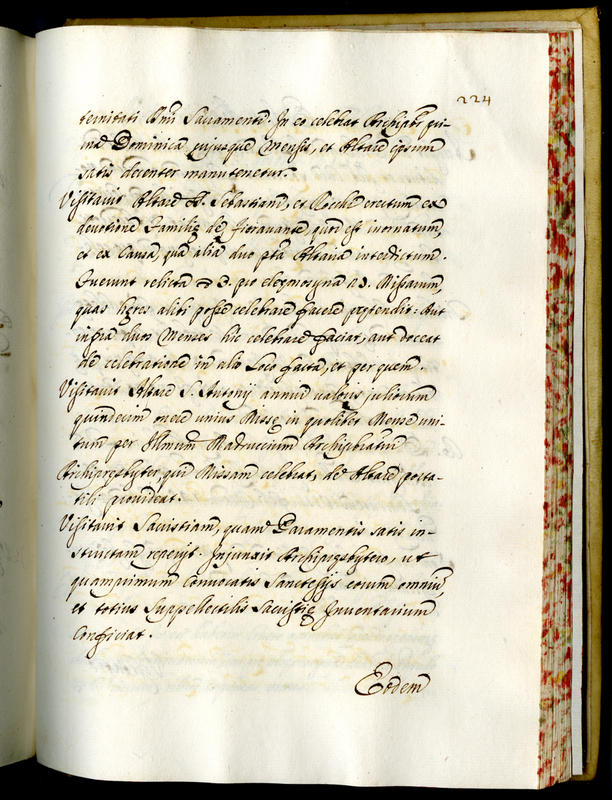 224
ternitati SSmi Sacramenti. In eo celebrat Archipbr pri-
ma Dominica cujusque Mensis, et Altare ipsum
satis decenter manutenetur.
Visitavit Altare S. Sebastiani, et Rocchi erectum ex
devotione Familię de Fioravante, quod est inornatum,
et ex Causa, qua alia duo pta Altaria interdictum.
Fuerunt relicta pro eleemosyna Missarum,
quas hęres alibi posse celebrare facere prętendit: Aut
infra duos Menses hic celebrare faciat, aut doceat
de celebratione in alio Loco facta, et per quem.
Visitavit Altare S. Antonij annui valoris juliorum
quindecim onere unius Missę in quolibet Mense uni-
tum per Illmum Madruccium Archipbratui
Archipresbyter, qui Missam celebrat, de Altare porta-
tili provideat.
Visitavit Sacristiam, quam Paramentis satis in-
structam reperijt. Injunxit Archipresbytero, ut
quamprimum convocatis Sanctesijs eorum omniu,
et totius Suppellectilis Sacristię Inventarium
Conficiat.
Eodem